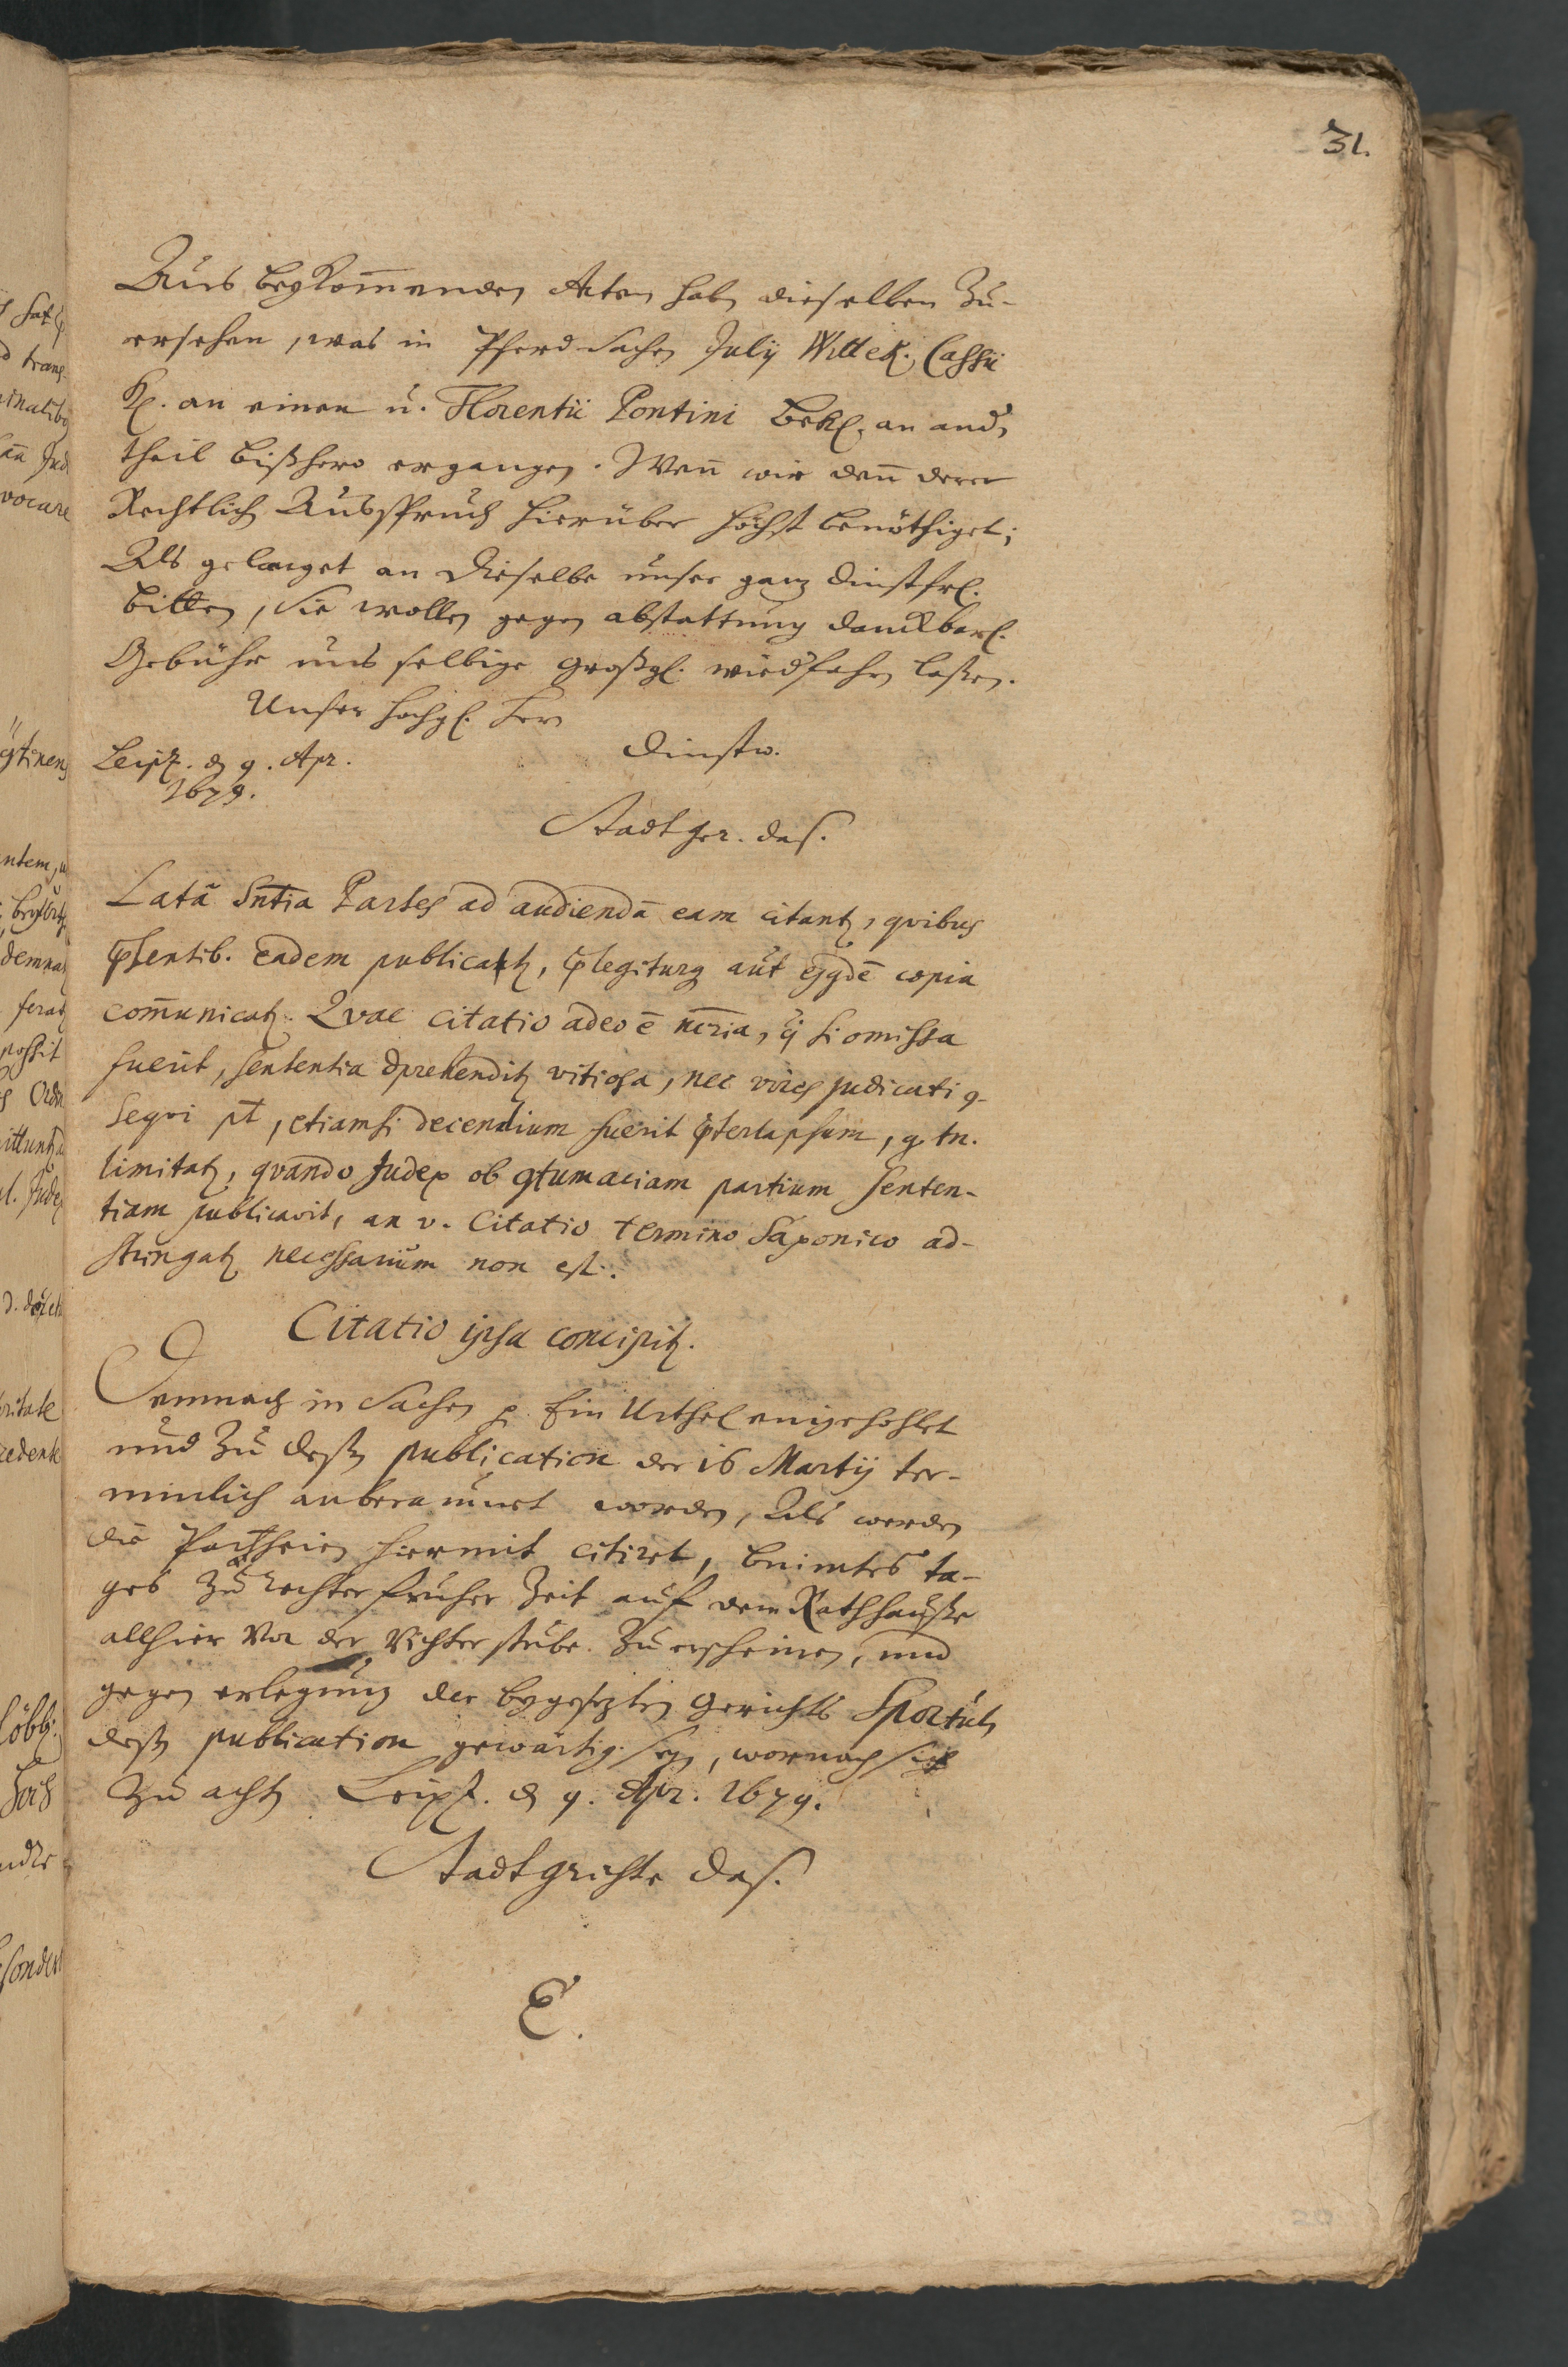 31.
Aus beykom̄enden Acten haben dieselben Zu-
ersehen, was in Pferd Sachen Julij Wittek. Cassii
Kl. an einen u. Florentii Pontini Bekl. an and.
theil bißhero ergangen. Wen̄ wir dan̄ derer
Rechtlich Ausspruch hierüber höchst benöthiget;
Als gelanget an Dieselbe unser ganz dinstfrl.
bitten, Sie wollen gegen abstattung danckbarl.
Gebühr uns selbige großgl. wiedfahrn laßen.
Unser hochgl. Hern
Leipz. d 9. Apr. Dinstw.
1679.
Stadtger. das.
Latā Sn̄tia Partes ad audiendā eam citantz, qvibus
pr̄sentib. eadem publicatz, pr̄legiturq aut ejqdē copia
com̄unicatz. Qvae citatio adeo ē nēria, q̄ si omissa
fuerit, sententia dprehenditz vitiosa, nec vires judicati 9-
seqvi pt̄, etiamsi decendium fuerit pr̄terlapsum, q. tn.
limitatz, qvando Judex ob 9tumaciam partium senten-
tiam publicavit, an v. Citatio termino Saxonico ad-
stringatz necessarium non est.
Citatio ipsa concipitz.
Demnach in Sachen p. Ein Urthel eingehohlet
und Zu deßen publication der 16 Martij ter-
minlich anberaumet worden, Als werden
die Partheien hiermit citiret, benimtes ta-
ges Zu rechter früher Zeit auf dem Rathhauße
allhier Vor der Richter stube Zu erscheinen, und
gegen erlegung der beygesezten Gerichts Sportuln
deßen publication gewärtig seyn, wornach sich
Zu achten Leipz. d 9. Apr. 1679.
Stadtgrichte das.
E.